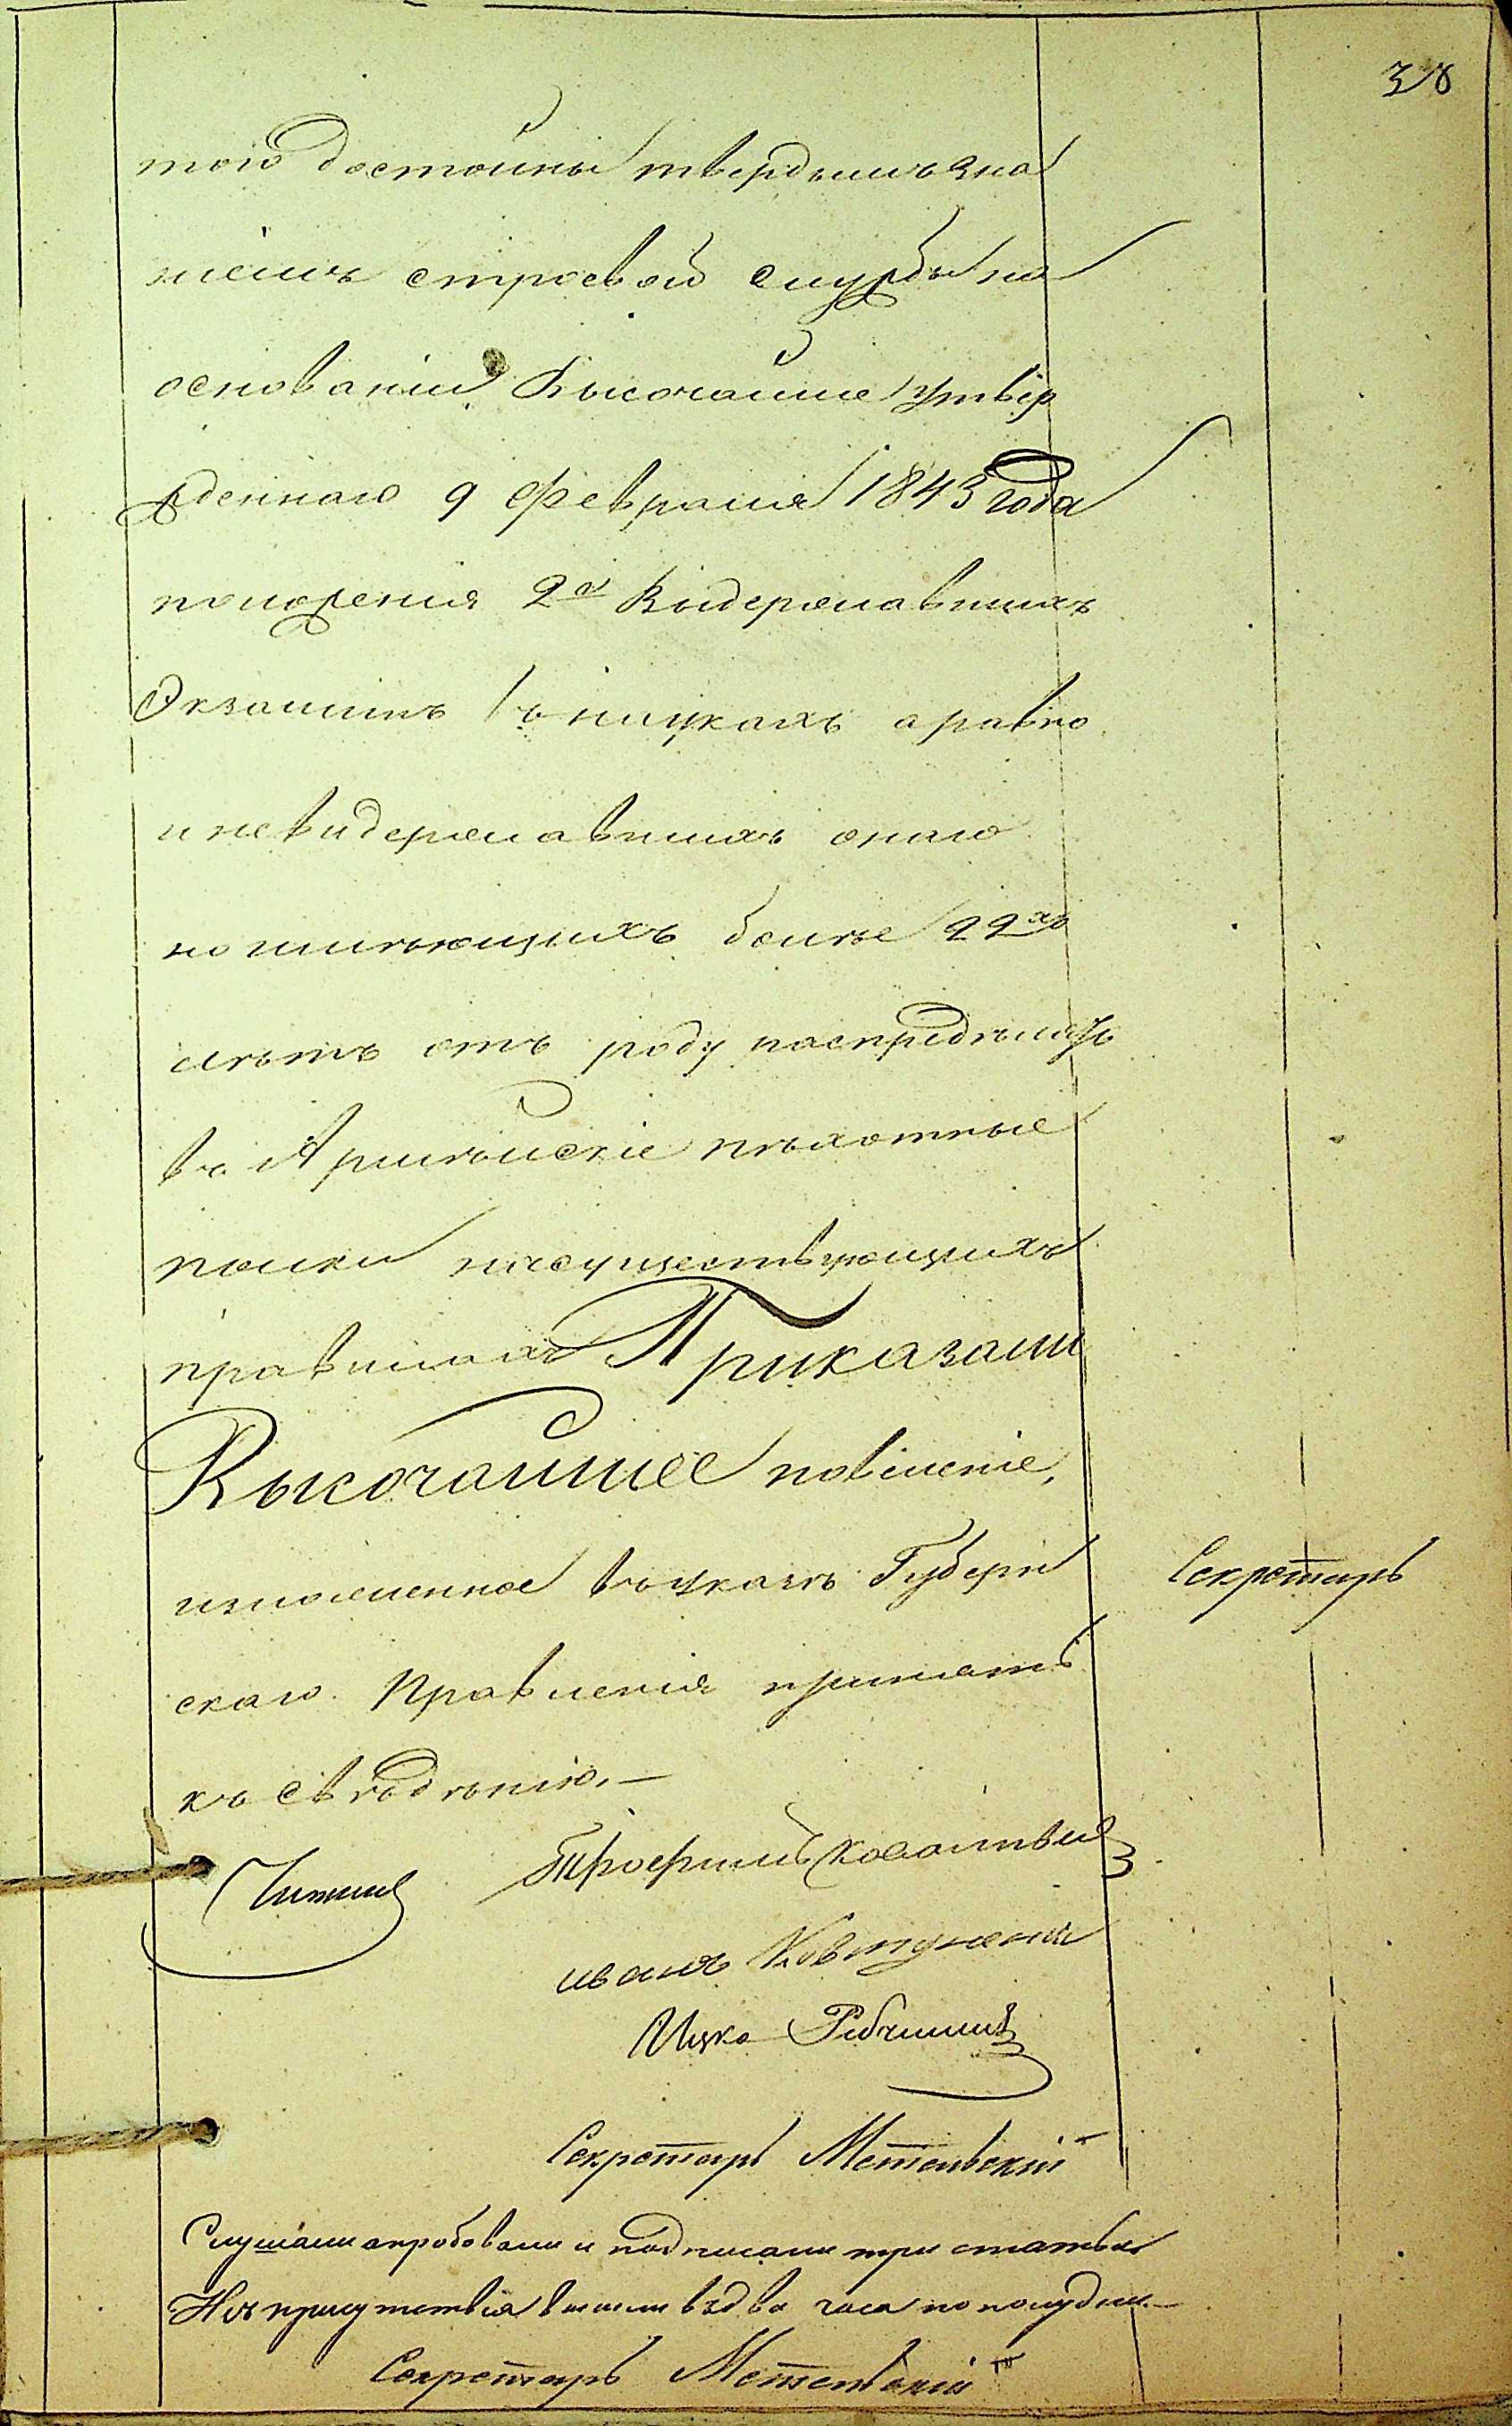 38
того достойны твердымъ зна
ніемъ строевой службы на
основаніи Высочайше утвер
жденнаго 9 февраля 1843 года
положенія 2е Выдержавшихъ
Экзаменъ въ наукахъ а равно
и невидержавшихъ онаго
но имѣющихъ болѣе 22хъ
лѣтъ отъ роду распредѣлять
въ Армѣйскіе пѣхотные
полки на существующихъ
правилахъ Приказали
Высочайшее повеленіе,
изложенное въ указѣ Губерн
скаго Правленія принять
къ сведѣнію.—
Секретарь
Трофимъ
иванъ Ковтуненко
Ицко
Секретарь
Слушали апробовали и подписали три статьи
Изъ присутствія вышли въ два часа по полудни—
Секретарь